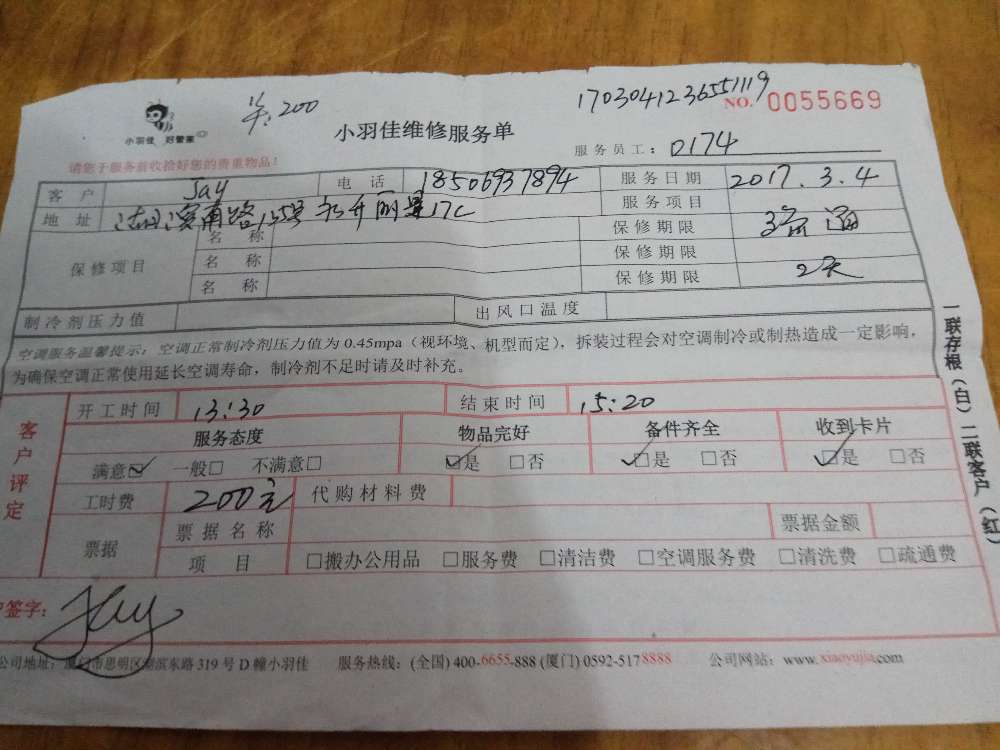 小羽佳 好管家
200
小羽佳维修服务单
1703041236551119
NO. 0055669
请您于服务前收拾好您的贵重物品！
服务员工：0174
客户 Jay 电话 18506937894 服务日期 2017.3.4
地址 17C 服务项目
保修项目 名称 保修期限
名称 保修期限
名称 保修期限 2天
制冷剂压力值 出风口温度
空调服务温馨提示：空调正常制冷剂压力值为0.45mpa（视环境、机型而定），拆装过程会对空调制冷或制热造成一定影响，
为确保空调正常使用延长空调寿命，制冷剂不足时请及时补充。
客户评定
开工时间 13:30 结束时间 15:20
服务态度 物品完好 备件齐全 收到卡片
满意☑ 一般□ 不满意□ ☑是 □否 ☑是 □否 ☑是 □否
工时费 200元 代购材料费
票据 票据名称 票据金额
项目 □搬办公用品 □服务费 □清洁费 □空调服务费 □清洗费 □疏通费
签字： Jay
公司地址：厦门市思明区湖滨东路319号D幢小羽佳 服务热线：(全国) 400-6655-888 (厦门) 0592-5178888 公司网站：www.xiaoyujia.com
一联存根（白）二联客户（红）